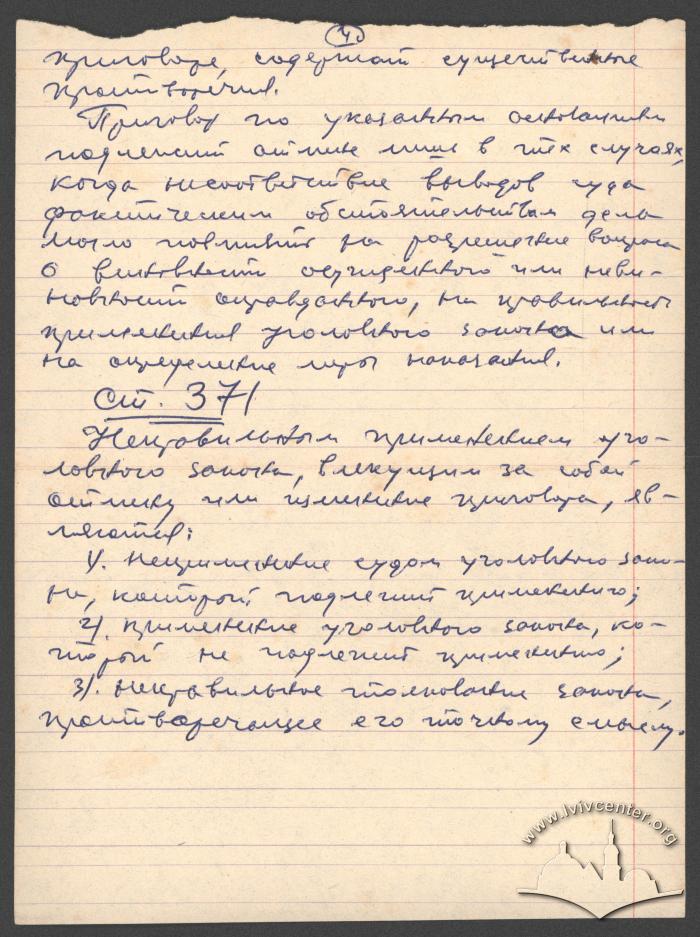 4
приговоре, содержат существенные
противоречия.
Приговор по указанным основаниям
подлежит отмене лишь в тех случаях,
когда несоответствие выводов суда
фактическим обстоятельствам дела
могло повлиять на разрешение вопроса
о виновности осужденного или неви-
новности оправданного, на правильность
применения уголовного закона или
на определение меры наказания.
Ст. 371
Неправильным применением уго-
ловного закона, влекущим за собой
отмену или изменение приговора, яв-
ляются:
1/. Неприменение судом уголовного зако-
на, который подлежит применению;
2/. применение уголовного закона, ко-
торый не подлежит применению;
3/. неправильное толкование закона,
противоречащее его точному смыслу.
www.lvivcenter.org